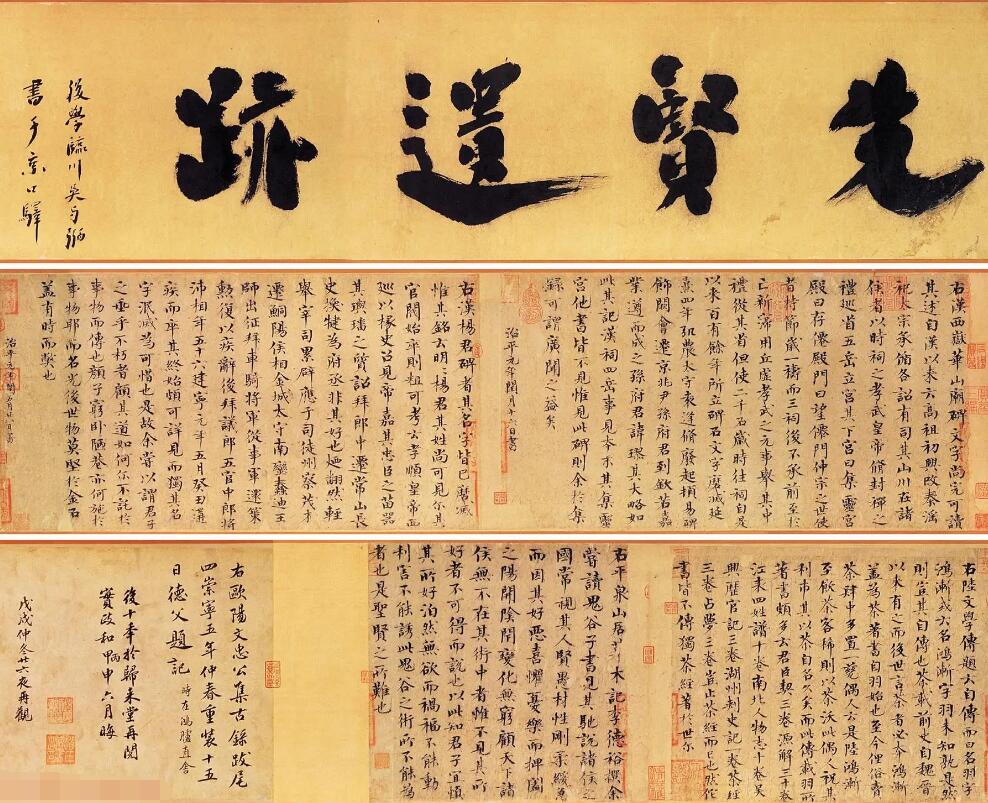 先賢遺跡
後學臨川吳與弼
書于京口驛
右漢西嶽華山廟碑文字尚完可讀
其述自漢以來云高祖初興改秦淫
祀太宗承循各詔有司其山川在諸
侯者以時祠之孝武皇帝脩封禪之
禮巡省五岳立宮其下宮曰集靈宮
殿曰存僊殿門曰望僊門仲宗之世使
者持節歲一禱而三祠後不承前至於
亡新寖用丘虛孝武之元事舉其中
禮從其省但使二千石歲時往祠自是
以來百有餘年所立碑石文字磨滅延
熹四年弘農太守袁逢脩廢起頓易碑
飾闕會遷京兆尹孫府君到欽若嘉
業遵而成之孫府君諱璆其大略如
此其記漢祠四岳事見本末其集靈
宮他書皆不見惟見此碑則余於集
錄可謂廣聞之益矣
治平元年閏月十六日書
右漢楊君碑者其名字皆已磨滅
惟其銘云明明楊君其姓尚可見尔其
官閥始卒則粗可考云孝順皇帝西
巡以掾史召見帝嘉其忠臣之苗器
其璵璠之質詔拜郎中遷常山長
史換犍為府丞非其好也迺翻然輕
舉宰司累辟應于司徒州察茂才
遷鮦陽侯相金城太守南蠻蠢迪王
師出征拜車騎將軍從事軍還策
勳復以疾辭後拜議郎五官中郎將
沛相年五十六建寧元年五月癸丑遘
疾而卒其終始頗可詳見而獨其名
字泯滅為可惜也是故余嘗以謂君子
之垂乎不朽者顧其道如何尔不託於
事物而傳也顏子窮臥陋巷亦何施於
事物耶而名光後世物莫堅於金石
蓋有時而弊也
治平元年閏五月廿八日書
右陸文學傳題云自傳而曰名羽字
鴻漸或云名鴻漸字羽未知孰是然
則豈其自傳也茶載前史自魏晉
以來有之而後世言茶者必本鴻漸
蓋為茶著書自羽始也至今俚俗賣
茶肆中多置一甆偶人云是陸鴻漸
至飲茶客稀則以茶沃此偶人祝其
利市其以茶自名久矣而此傳載羽所
著書頗多云君臣契三卷源解三十卷
江表四姓譜十卷南北人物志十卷吳
興歷官記三卷湖州刺史記一卷茶經
三卷占夢三卷豈止茶經而已也然佗
書皆不傳獨茶經著於世尔
右平泉山居草木記李德裕撰余
嘗讀鬼谷子書見其馳說諸侯之
國常視其人賢愚材性剛柔緩急
而因其好惡喜懼憂樂而捭闔
之陽開陰閉變化無窮顧天下諸
侯無不在其術中者惟不見其所
好者不可得而說也以此知君子宜慎
其所好泊然無欲而禍福不能動
利害不能誘此鬼谷之術所不能為
者也是聖賢之所難也
右歐陽文忠公集古錄跋尾
四崇寧五年仲春重裝十五
日德父題記
時在鴻臚直舍
後十年於歸來堂再閱
實政和甲午六月晦
戊戌仲冬廿六夜再觀